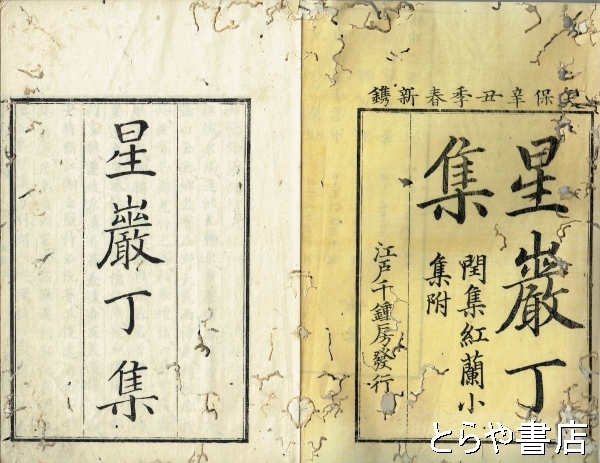 天保辛丑季春新鐫
星巖丁
集
閏集紅蘭小
集附
江戸千鍾房發行
星巖丁集
とらや書店